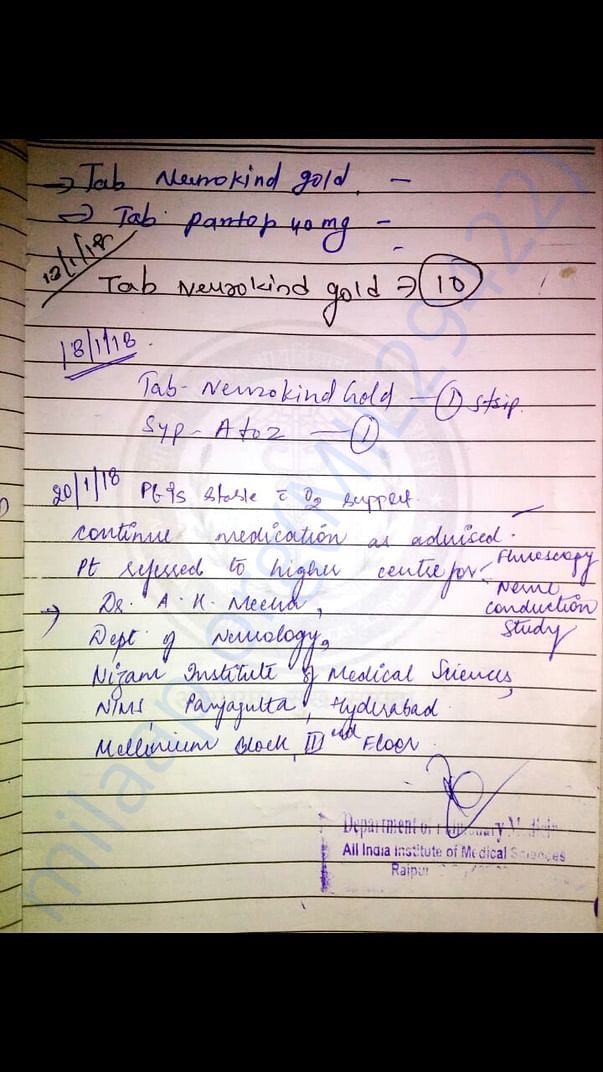 → Tab Neurokind gold. –
⇒ Tab. pantop 40 mg –
Tab Neurokind gold ⇒ 10
18/1/18.
Tab - Neurokind Gold — 1 strip.
Syp - A to Z — 1
20/1/18 Pt is stable c̄ O2 support.
continue medication as advised.
Pt referred to higher centre for - Fluroscopy
- Nerve conduction Study
→ Dr. A. K. Meena,
Dept of Neurology,
Nizam Institute of Medical Sciences,
NIMS, Panjagutta, Hyderabad.
Mellinium Block, IInd Floor.
Department of
All India Institute of Medical Sciences
Raipur
milaap